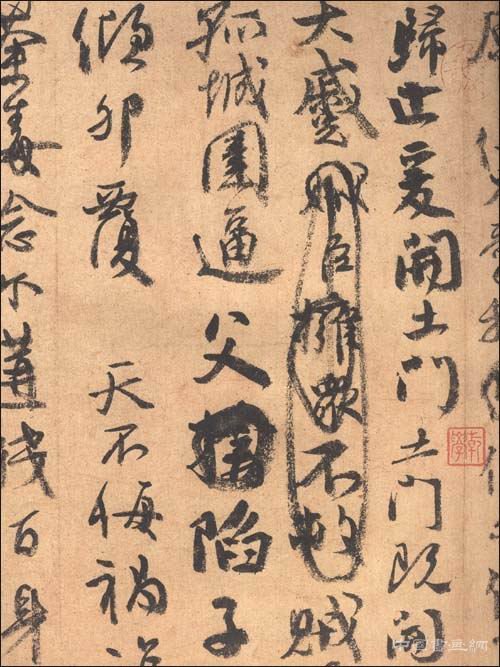 歸止爰開土門土門既開
大蹙賊臣擁衆不救賊
孤城圍逼父陷子
傾卵覆天不悔禍
荼毒念尔遘殘百身
乾學
中国書画網